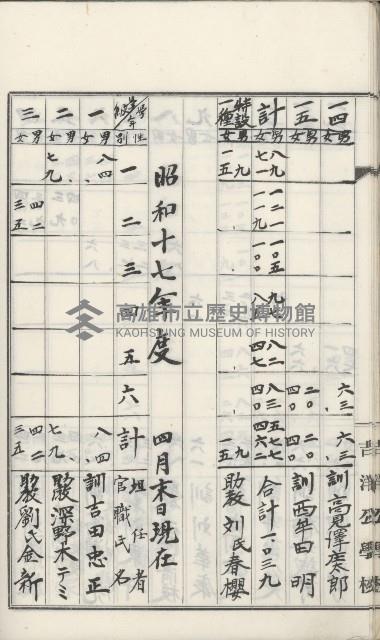 一四 男 女 六三 六三 訓 高見澤庄太郎
一五 男 女 二〇 四〇 二〇 四〇 訓 西年四明
計 男 女 八九 七一 一二一 一一九 一〇五 一〇〇 九七 八二 四七 八三 四〇 五七七 四六二 合計一〇三九
特設一種 男 女 九 一五 九 一五 助教 刘氏春櫻
昭和十七年度 四月末日現在
學年 學級 性別 一 二 三 四 五 六 計 担任者官職氏名
一 男 女 八四 八四 訓 吉田忠正
二 男 女 七九 七九 深野木テミ
三 男 女 四二 三五 四二 三五 劉氏金新
高雄市立歷史博物館
KAOHSIUNG MUSEUM OF HISTORY